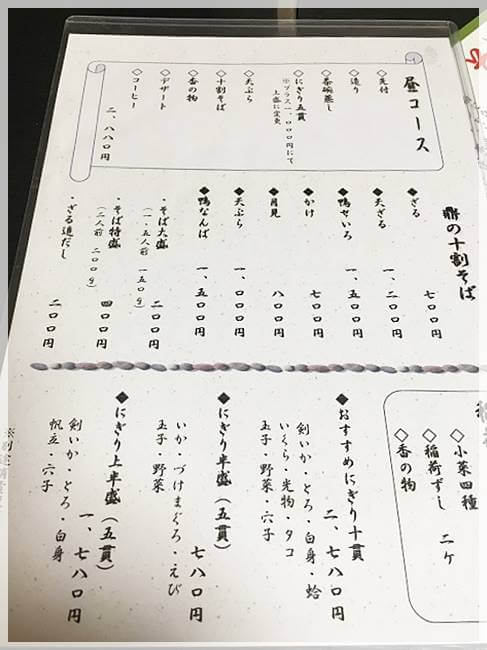 昼コース
◇先付
◇造り
◇茶碗蒸し
◇にぎり五貫
※プラス一、〇〇〇円にて
上盛に変更
◇天ぷら
◇十割そば
◇香の物
◇デザート
◇コーヒー
二、八八〇円
鼎の十割そば
◆ざる 七〇〇円
◆天ざる 一、二〇〇円
◆鴨せいろ 一、五〇〇円
◆かけ 七〇〇円
◆月見 八〇〇円
◆天ぷら 一、〇〇〇円
◆鴨なんば 一、五〇〇円
・そば大盛 二〇〇円
(一、五人前 一五〇g)
・そば特盛 四〇〇円
(二人前 二〇〇g)
・ざる追だし 二〇〇円
◇小菜四種
◇稲荷ずし 二ケ
◇香の物
◆おすすめにぎり十貫
二、七八〇円
剣いか・とろ・白身・蛤
いくら・光物・タコ
玉子・野菜・穴子
◆にぎり半盛(五貫)
七八〇円
いか・づけまぐろ・えび
玉子・野菜
◆にぎり上半盛(五貫)
一、七八〇円
剣いか・とろ・白身
帆立・穴子